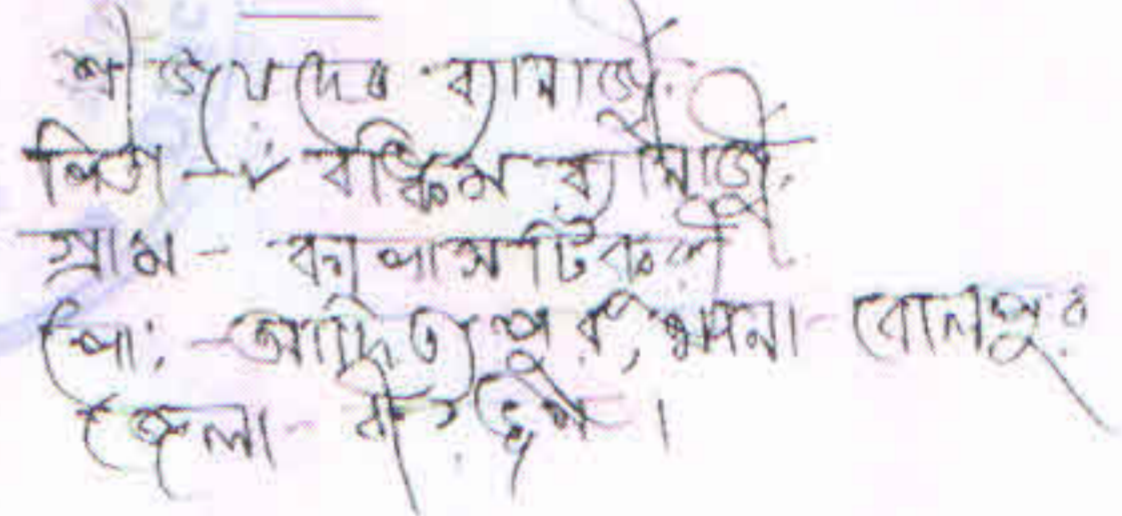 শ্রী জয়দেব ব্যানার্জী
পিতা - ৺ বঙ্কিম ব্যানার্জী
গ্রাম - কাপাসটিকুরী
পো: - আদিত্যপুর, থানা - বোলপুর
জেলা - বীরভূম ।